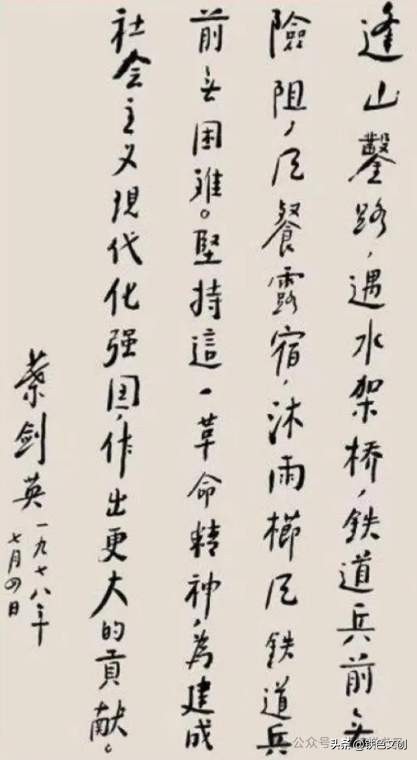 逢山鑿路，遇水架桥，鉄道兵前无
險阻，风餐露宿，沐雨櫛风鉄道兵
前无困难。堅持這一革命精神，為建成
社会主义現代化强国，作出更大的貢献。
葉剑英一九七八年
七月四日
公众号
头条@铁色文创